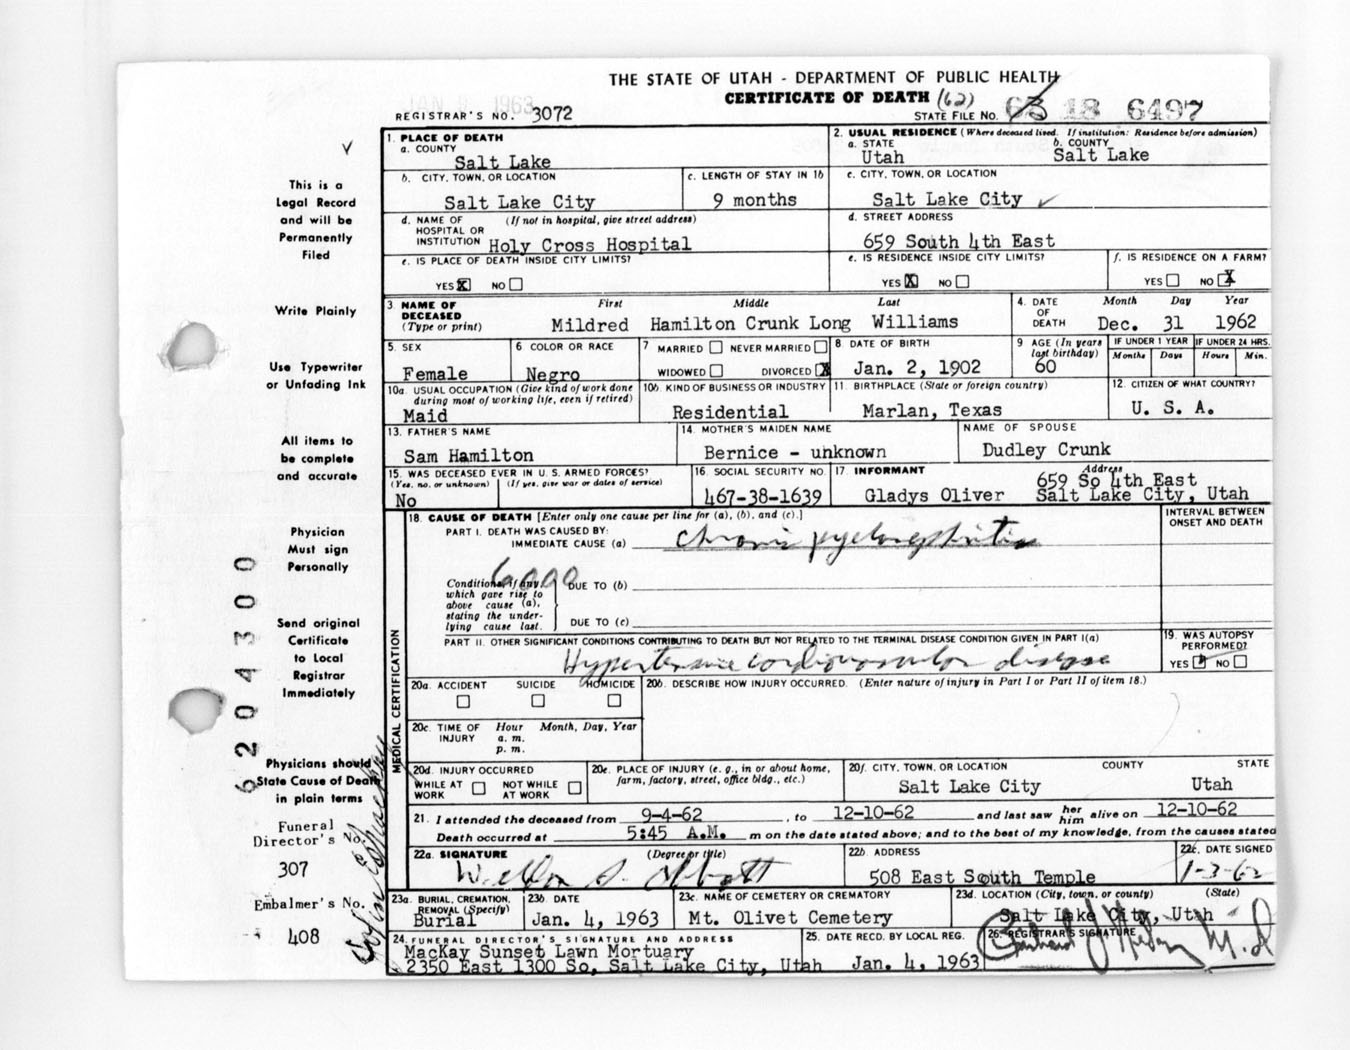 THE STATE OF UTAH - DEPARTMENT OF PUBLIC HEALTH
JAN 1963 CERTIFICATE OF DEATH (62) 63 18 6497
REGISTRAR'S NO. 3072 STATE FILE NO.
1. PLACE OF DEATH
a. COUNTY
Salt Lake
2. USUAL RESIDENCE (Where deceased lived. If institution: Residence before admission)
a. STATE b. COUNTY
Utah Salt Lake
b. CITY, TOWN, OR LOCATION
Salt Lake City
c. LENGTH OF STAY IN 1b
9 months
c. CITY, TOWN, OR LOCATION
Salt Lake City
d. NAME OF (If not in hospital, give street address)
HOSPITAL OR
INSTITUTION Holy Cross Hospital
d. STREET ADDRESS
659 South 4th East
e. IS PLACE OF DEATH INSIDE CITY LIMITS?
YES X NO
e. IS RESIDENCE INSIDE CITY LIMITS?
YES X NO
f. IS RESIDENCE ON A FARM?
YES NO X
3. NAME OF First Middle Last
DECEASED
(Type or print) Mildred Hamilton Crunk Long Williams
4. DATE Month Day Year
OF
DEATH Dec. 31 1962
5. SEX
Female
6 COLOR OR RACE
Negro
7 MARRIED NEVER MARRIED
WIDOWED DIVORCED X
8 DATE OF BIRTH
Jan. 2, 1902
9 AGE (In years
last birthday)
60
IF UNDER 1 YEAR IF UNDER 24 HRS.
Months Days Hours Min.
10a. USUAL OCCUPATION (Give kind of work done
during most of working life, even if retired)
Maid
10b. KIND OF BUSINESS OR INDUSTRY
Residential
11. BIRTHPLACE (State or foreign country)
Marlan, Texas
12. CITIZEN OF WHAT COUNTRY?
U. S. A.
13. FATHER'S NAME
Sam Hamilton
14. MOTHER'S MAIDEN NAME
Bernice - unknown
NAME OF SPOUSE
Dudley Crunk
15. WAS DECEASED EVER IN U. S. ARMED FORCES?
(Yes, no, or unknown) (If yes, give war or dates of service)
No
16. SOCIAL SECURITY NO.
467-38-1639
17. INFORMANT Address
Gladys Oliver
659 So 4th East
Salt Lake City, Utah
18. CAUSE OF DEATH [Enter only one cause per line for (a), (b), and (c).]
PART I. DEATH WAS CAUSED BY:
IMMEDIATE CAUSE (a) chronic pyelonephritis
INTERVAL BETWEEN
ONSET AND DEATH
6000
Conditions, if any, DUE TO (b)
which gave rise to
above cause (a),
stating the under-
lying cause last. DUE TO (c)
PART II. OTHER SIGNIFICANT CONDITIONS CONTRIBUTING TO DEATH BUT NOT RELATED TO THE TERMINAL DISEASE CONDITION GIVEN IN PART I(a)
Hypertensive cardiovascular disease
19. WAS AUTOPSY
PERFORMED?
YES NO
20a. ACCIDENT SUICIDE HOMICIDE
20b. DESCRIBE HOW INJURY OCCURRED. (Enter nature of injury in Part I or Part II of item 18.)
20c. TIME OF Hour Month, Day, Year
INJURY a. m.
p. m.
20d. INJURY OCCURRED
WHILE AT NOT WHILE
WORK AT WORK
20e. PLACE OF INJURY (e. g., in or about home,
farm, factory, street, office bldg., etc.)
20f. CITY, TOWN, OR LOCATION COUNTY STATE
Salt Lake City Utah
21. I attended the deceased from 9-4-62, to 12-10-62 and last saw her him alive on 12-10-62
Death occurred at 5:45 A.M. m on the date stated above; and to the best of my knowledge, from the causes stated
22a. SIGNATURE (Degree or title)
22b. ADDRESS
508 East South Temple
22c. DATE SIGNED
1-3-62
23a. BURIAL, CREMATION,
REMOVAL (Specify)
Burial
23b. DATE
Jan. 4, 1963
23c. NAME OF CEMETERY OR CREMATORY
Mt. Olivet Cemetery
23d. LOCATION (City, town, or county) (State)
Salt Lake City, Utah
24. FUNERAL DIRECTOR'S SIGNATURE AND ADDRESS
MacKay Sunset Lawn Mortuary
2350 East 1300 So, Salt Lake City, Utah
25. DATE RECD. BY LOCAL REG.
Jan. 4, 1963
26. REGISTRAR'S SIGNATURE
M.D.
MEDICAL CERTIFICATION
This is a
Legal Record
and will be
Permanently
Filed
Write Plainly
Use Typewriter
or Unfading Ink
All items to
be complete
and accurate
Physician
Must sign
Personally
Send original
Certificate
to Local
Registrar
Immediately
Physicians should
State Cause of Death
in plain terms
Funeral
Director's
307
Embalmer's No.
408
6204300